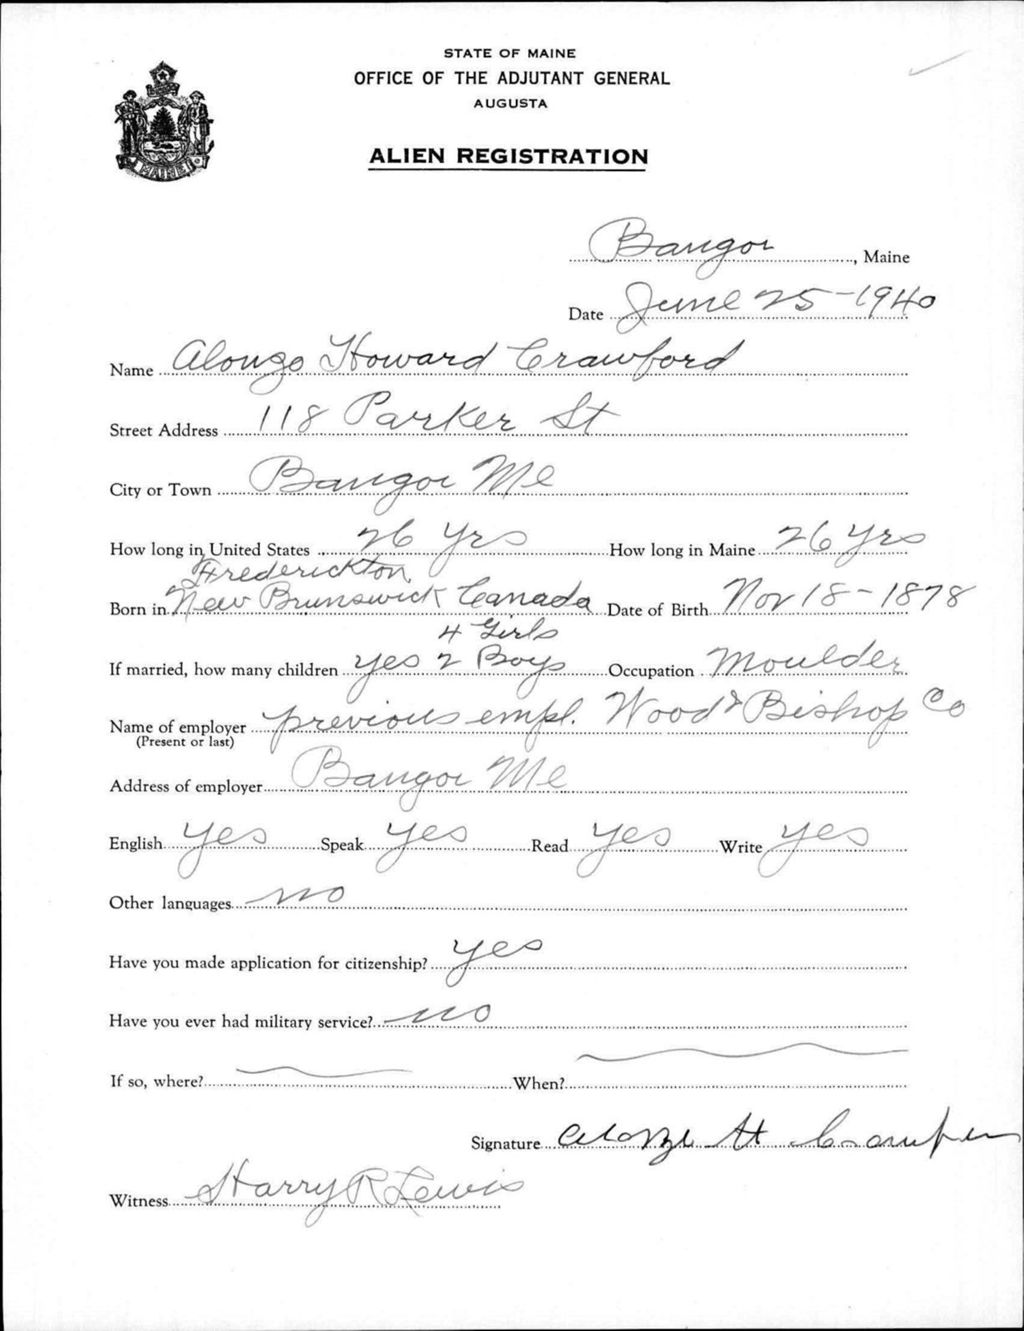 STATE OF MAINE
OFFICE OF THE ADJUTANT GENERAL
AUGUSTA
ALIEN REGISTRATION
MAINE
Bangor, Maine
Date June 25-1940
Name Alonzo Howard Crawford
Street Address 118 Parker St
City or Town Bangor Me
How long in United States 26 yrs How long in Maine 26 yrs
Frederickton,
Born in New Brunswick Canada Date of Birth Nov 18-1878
4 Girls
If married, how many children yes 2 Boys Occupation Moulder
Name of employer previous empl. Wood & Bishop Co
(Present or last)
Address of employer Bangor Me
English yes Speak yes Read yes Write yes
Other languages no
Have you made application for citizenship? yes
Have you ever had military service? no
If so, where? When?
Signature Alonzo H Crawford
Witness Harry R Lewis